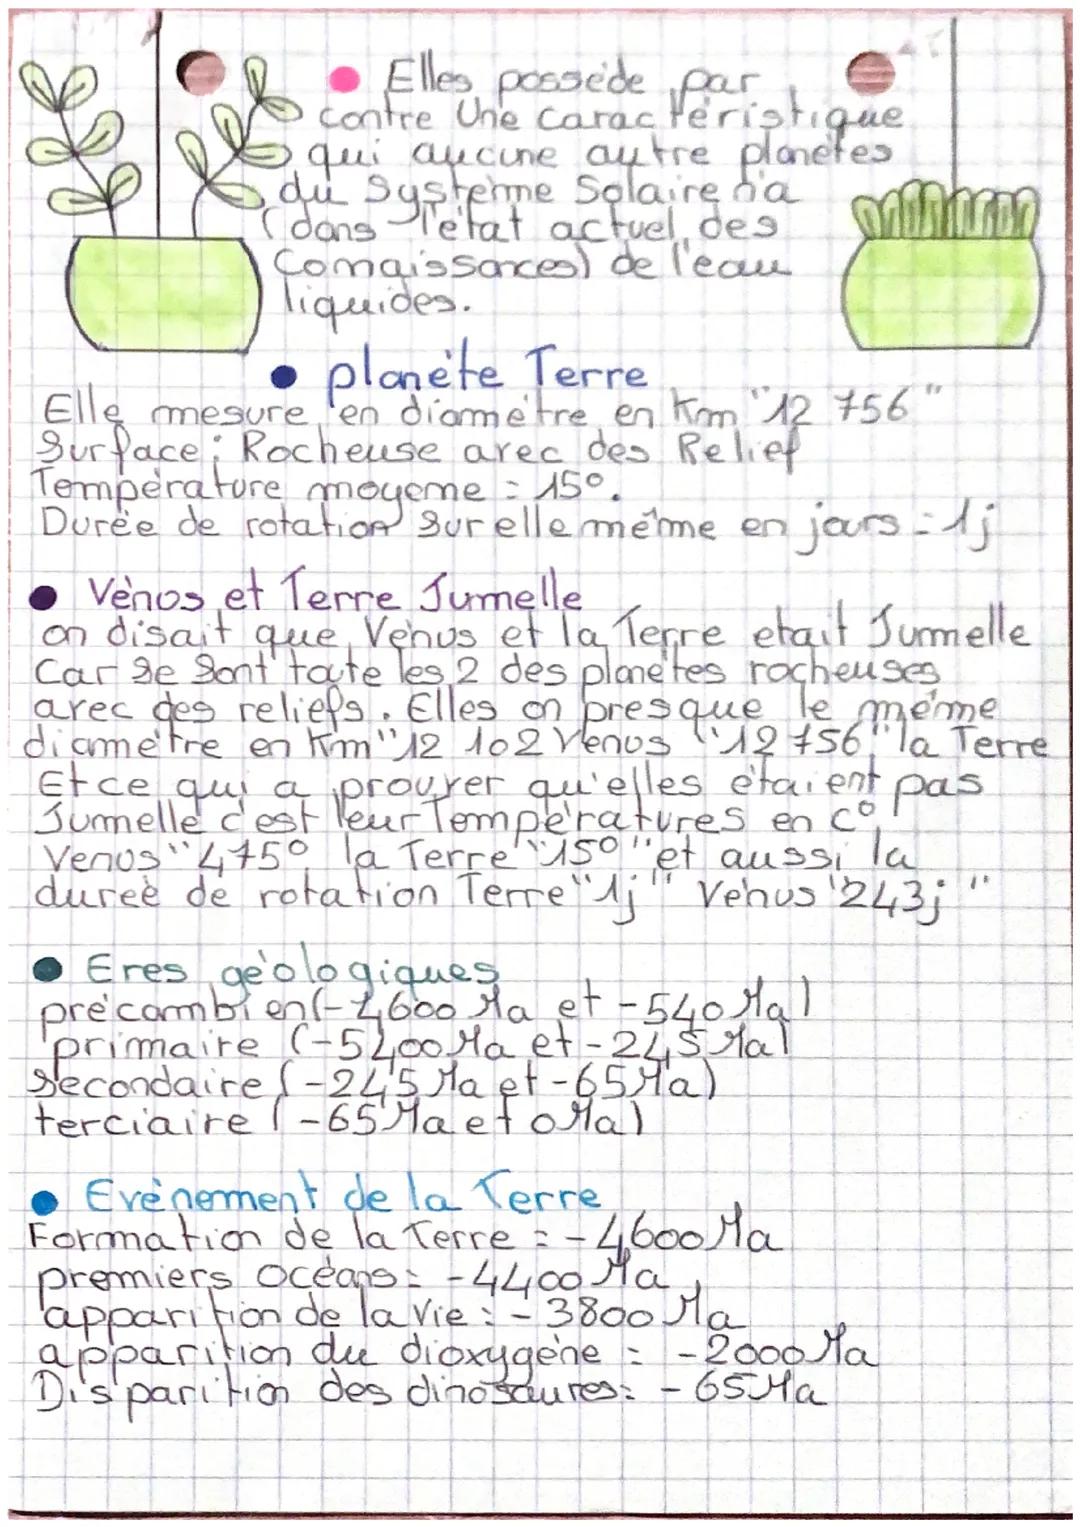 Elles possède par
contre Une caractéristique
qui aucune autre planètes
du système Solaire n'a
(dans l'état actuel des
Connaissances) de l'eau
liquides.
planète Terre
Elle mesure en diamètre en Km "12 756"
Surface : Rocheuse avec des Relief
Température moyenne = 15°.
Durée de rotation sur elle même en jours = 1j
Vénos et Terre Jumelle
on disait que Vénus et la Terre etait Jumelle
Car se sont toute les 2 des planètes rocheuses
avec des reliefs. Elles on presque le même
diamètre en Km "12 102 Venus "12 756" la Terre
Et ce qui a prouver qu'elles étaient pas
Jumelle c'est leur Températures en C°
Venus "475° la Terre "15°" et aussi la
dureé de rotation Terre "1j" Vénus "243j"
Eres géologiques
précambien (-4600 Ma et -540 Ma)
primaire (-5400 Ma et -245 Ma)
secondaire (-245 Ma et -65 Ma)
terciaire (-65 Ma et 0 Ma)
Evénement de la Terre
Formation de la Terre : -4600 Ma
premiers océans : -4400 Ma
apparition de la vie : -3800 Ma
apparition du dioxygène : -2000 Ma
Disparition des dinosaures : -65 Ma